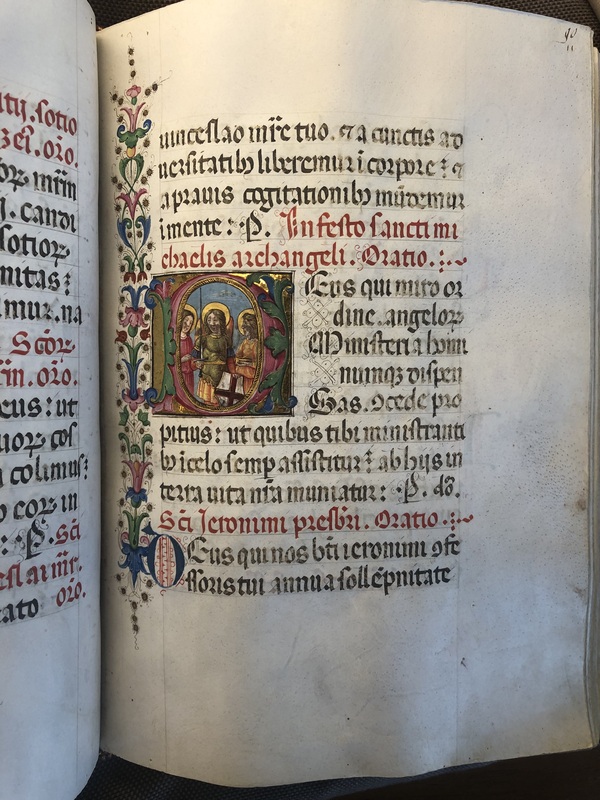 tij. sotio
zei. oro.
mur. na
Scoꝝ
in. oro.
eus: ut
colimus:
cor in
.P. Sci
oro.
uinceslao mr̃e tuo. ⁊ a cunctis ad
uersitatibꝫ liberemur i corpore: ⁊
a prauis cogitationibꝫ mũdemur
imente: .P. In festo sancti mi
chaelis archangeli. Oratio.
Deus qui miro or
dine. angeloꝝ
Ministeria homi
numqꝫ dispen
sas. ꝯcede pro
pitius: ut quibus tibi ministranti
bꝫ i celo semp assistitur: ab hijs in
terra uita nr̃a muniatur: .P. dõ.
Sc̃i Jeronimi presbr̃i. Oratio.
Deus qui nos bt̃i ieronimi ꝯfe
ssoris tui annua sollẽpnitate